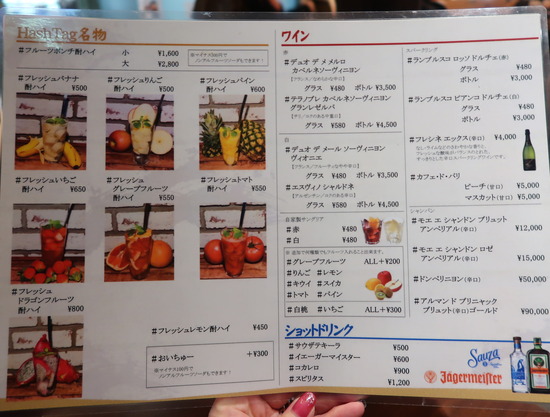 HashTag名物
#フルーツポンチ酎ハイ 小 ¥1,600
大 ¥2,800
※マイナス100円で
ノンアルフルーツソーダもできます!
#フレッシュバナナ
酎ハイ ¥500
#フレッシュりんご
酎ハイ ¥500
#フレッシュパイン
酎ハイ ¥600
#フレッシュいちご
酎ハイ ¥660
#フレッシュ
グレープフルーツ
酎ハイ ¥550
#フレッシュトマト
酎ハイ ¥550
#フレッシュ
ドラゴンフルーツ
酎ハイ ¥800
#フレッシュレモン酎ハイ ¥450
#おいちゅー +¥300
※マイナス100円で
ノンアルフルーツソーダもできます!
ワイン
赤
#デュオ デ メ メルロ
カベルネソーヴィニヨン
グラス ¥480 ボトル ¥3,500
#テラノブレ カベルネソーヴィニヨン
グランレゼルバ
グラス ¥580 ボトル ¥4,500
白
#デュオ デ メール ソーヴィニヨン
ヴィオニエ
グラス ¥480 ボトル ¥3,500
#エスヴィノ シャルドネ
グラス ¥580 ボトル ¥4,500
自家製サングリア
#赤 ¥480
#白 ¥480
#グレープフルーツ ALL+¥200
#りんご #レモン
#キウイ #スイカ
#トマト #パイン
#白桃 #いちご ALL+¥300
スパークリング
#ランブルスコ ロッソ ドルチェ(赤)
グラス ¥480
ボトル ¥3,000
#ランブルスコ ビアンコ ドルチェ(白)
グラス ¥480
ボトル ¥3,000
#フレシネ エックス(辛口) ¥4,000
#カフェ・ド・パリ
ピーチ(甘口) ¥5,000
マスカット(甘口) ¥5,000
シャンパン
#モエ エ シャンドン ブリュット
アンペリアル(辛口) ¥12,000
#モエ エ シャンドン ロゼ
アンペリアル(辛口) ¥15,000
#ドンペリニヨン(辛口) ¥50,000
#アルマンド ブリニャック
ブリュット(辛口)ゴールド ¥90,000
ショットドリンク
#サウザテキーラ ¥500
#イエーガーマイスター ¥600
#コカレロ ¥900
#スピリタス ¥1,200
Sauza
Jägermeister